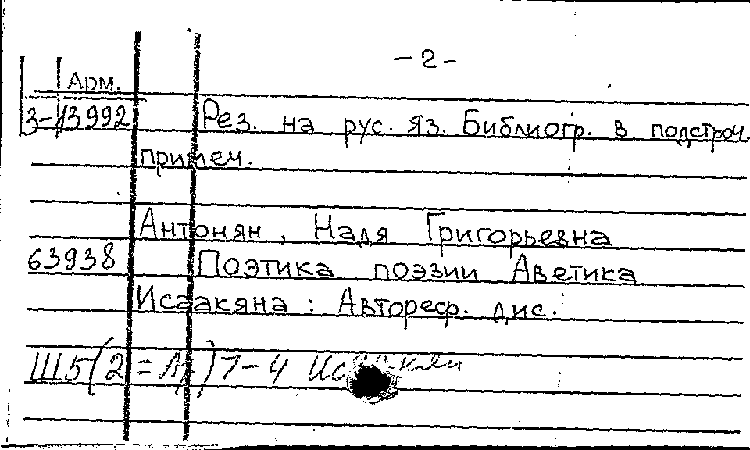 -2-
Арм.
3-13992 Рез. на рус. яз. Библиогр. в подстроч.
примеч.
Антонян, Надя Григорьевна
63938 Поэтика поэзии Аветика
Исаакяна : Автореф. дис.
Ш5(2=Ар)7-4